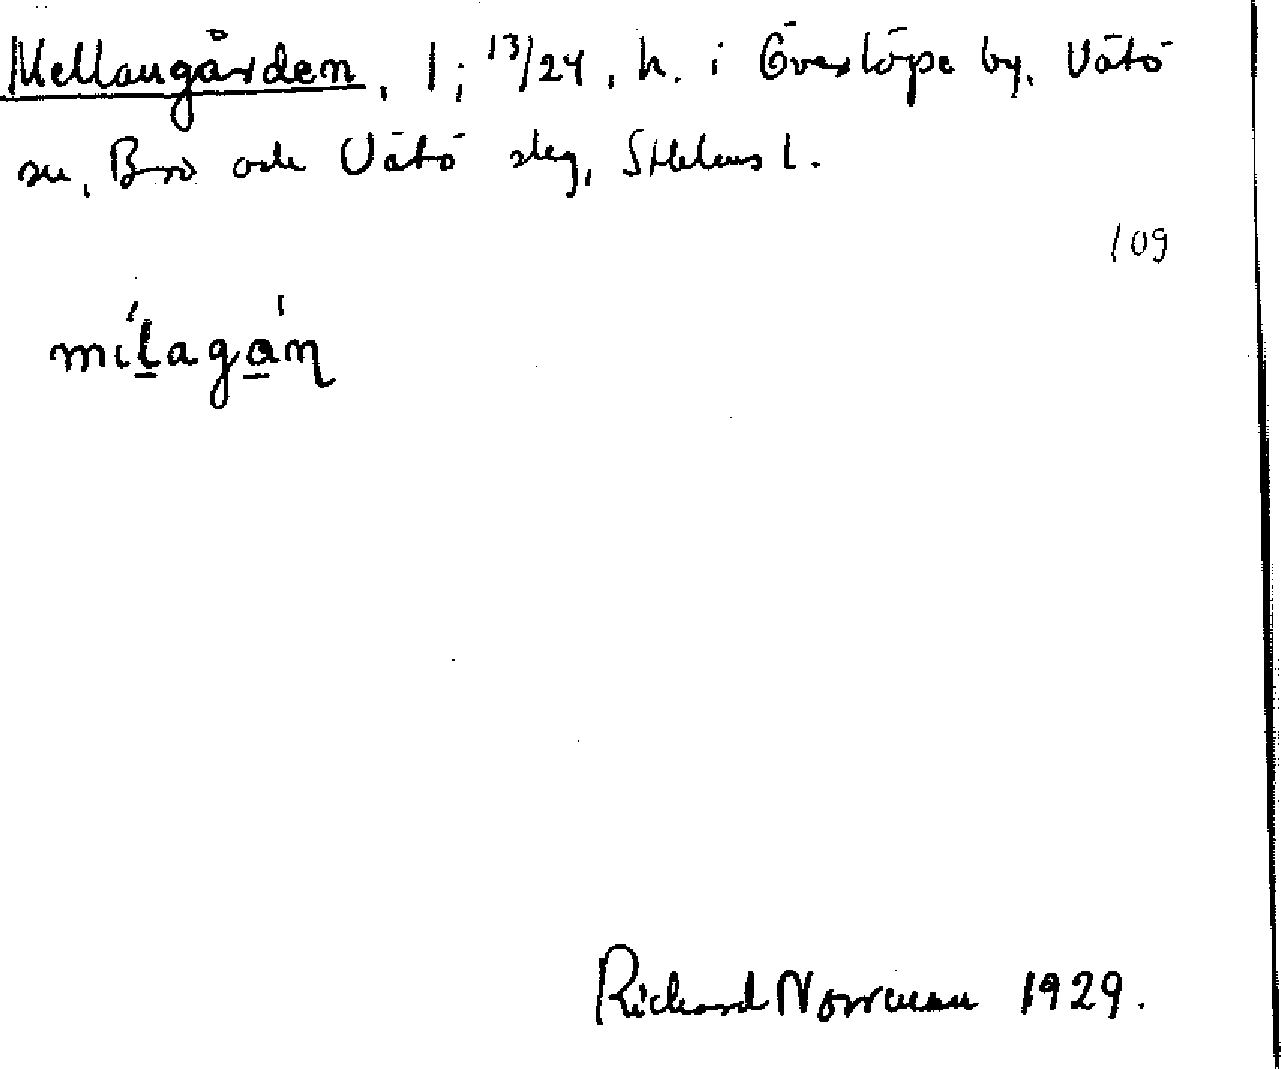 Mellangården, 1; 13/24, h. i Överlöpe by, Vätö
sn, Bro och Vätö skg, Sthlms l.
109
mílagán
Richard Norrman 1929.